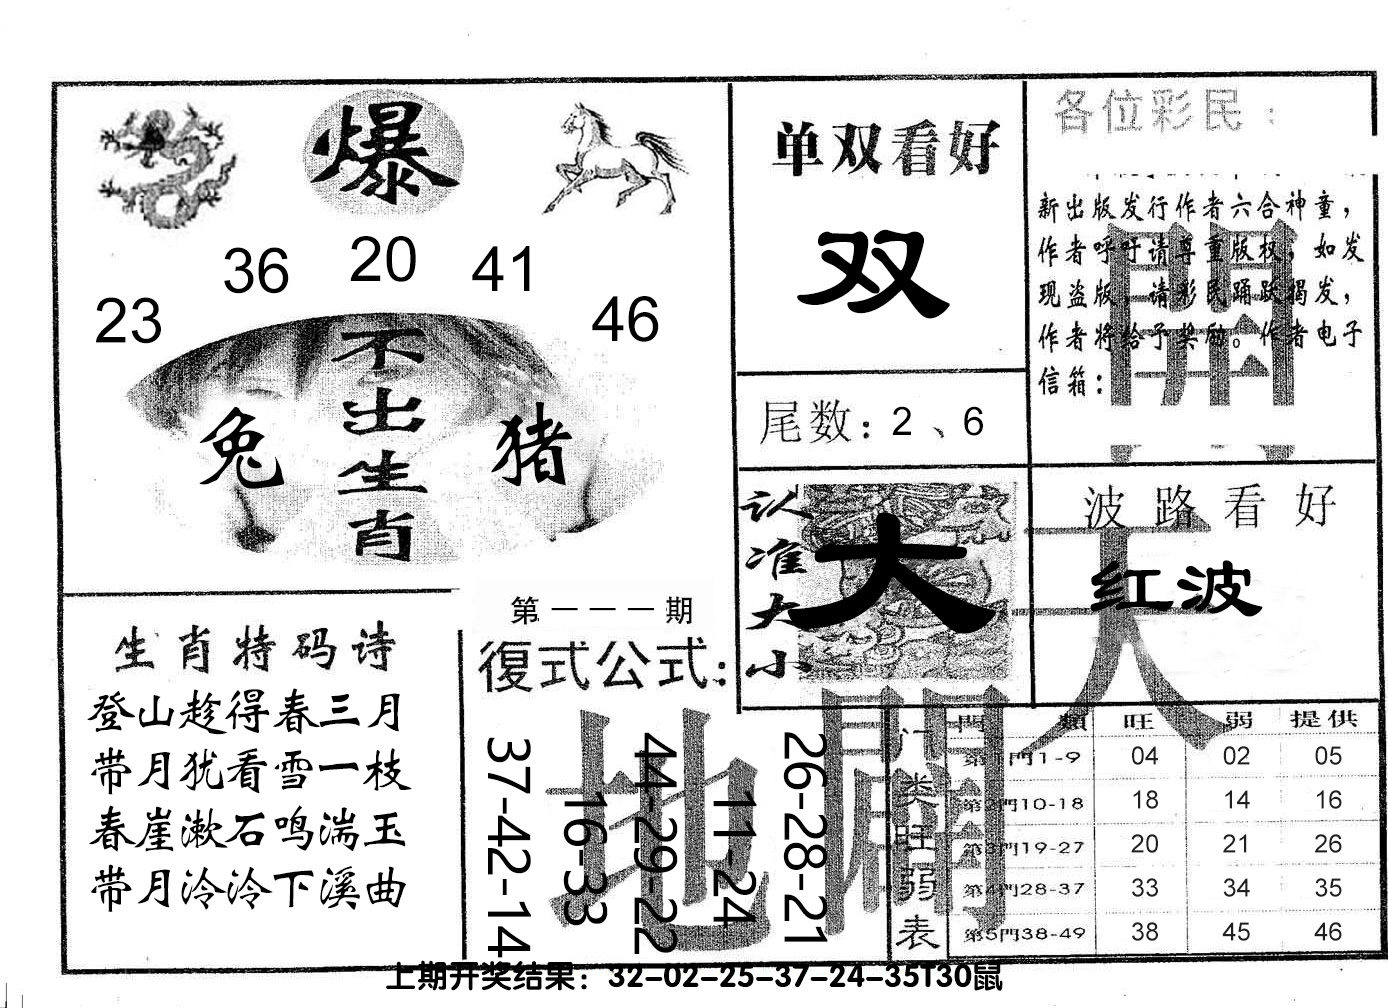 爆
23 36 20 41 46
不出生肖
兔 猪
单双看好
双
尾数：2、6
各位彩民：
新出版发行作者六合神童，
作者呼吁请尊重版权，如发
现盗版，请彩民踊跃揭发，
作者将给予奖励。作者电子
信箱：
認准大小
大
波路看好
红波
天
地
開
開
生肖特码诗
登山趁得春三月
带月犹看雪一枝
春崖漱石鸣湍玉
带月泠泠下溪曲
第一一一期
復式公式：
37-42-14
16-33
44-29-22
11-24
26-28-21
门类旺弱表
門類 旺 弱 提供
第1門1-9 04 02 05
第2門10-18 18 14 16
第3門19-27 20 21 26
第4門28-37 33 34 35
第5門38-49 38 45 46
上期开奖结果：32-02-25-37-24-35T30鼠